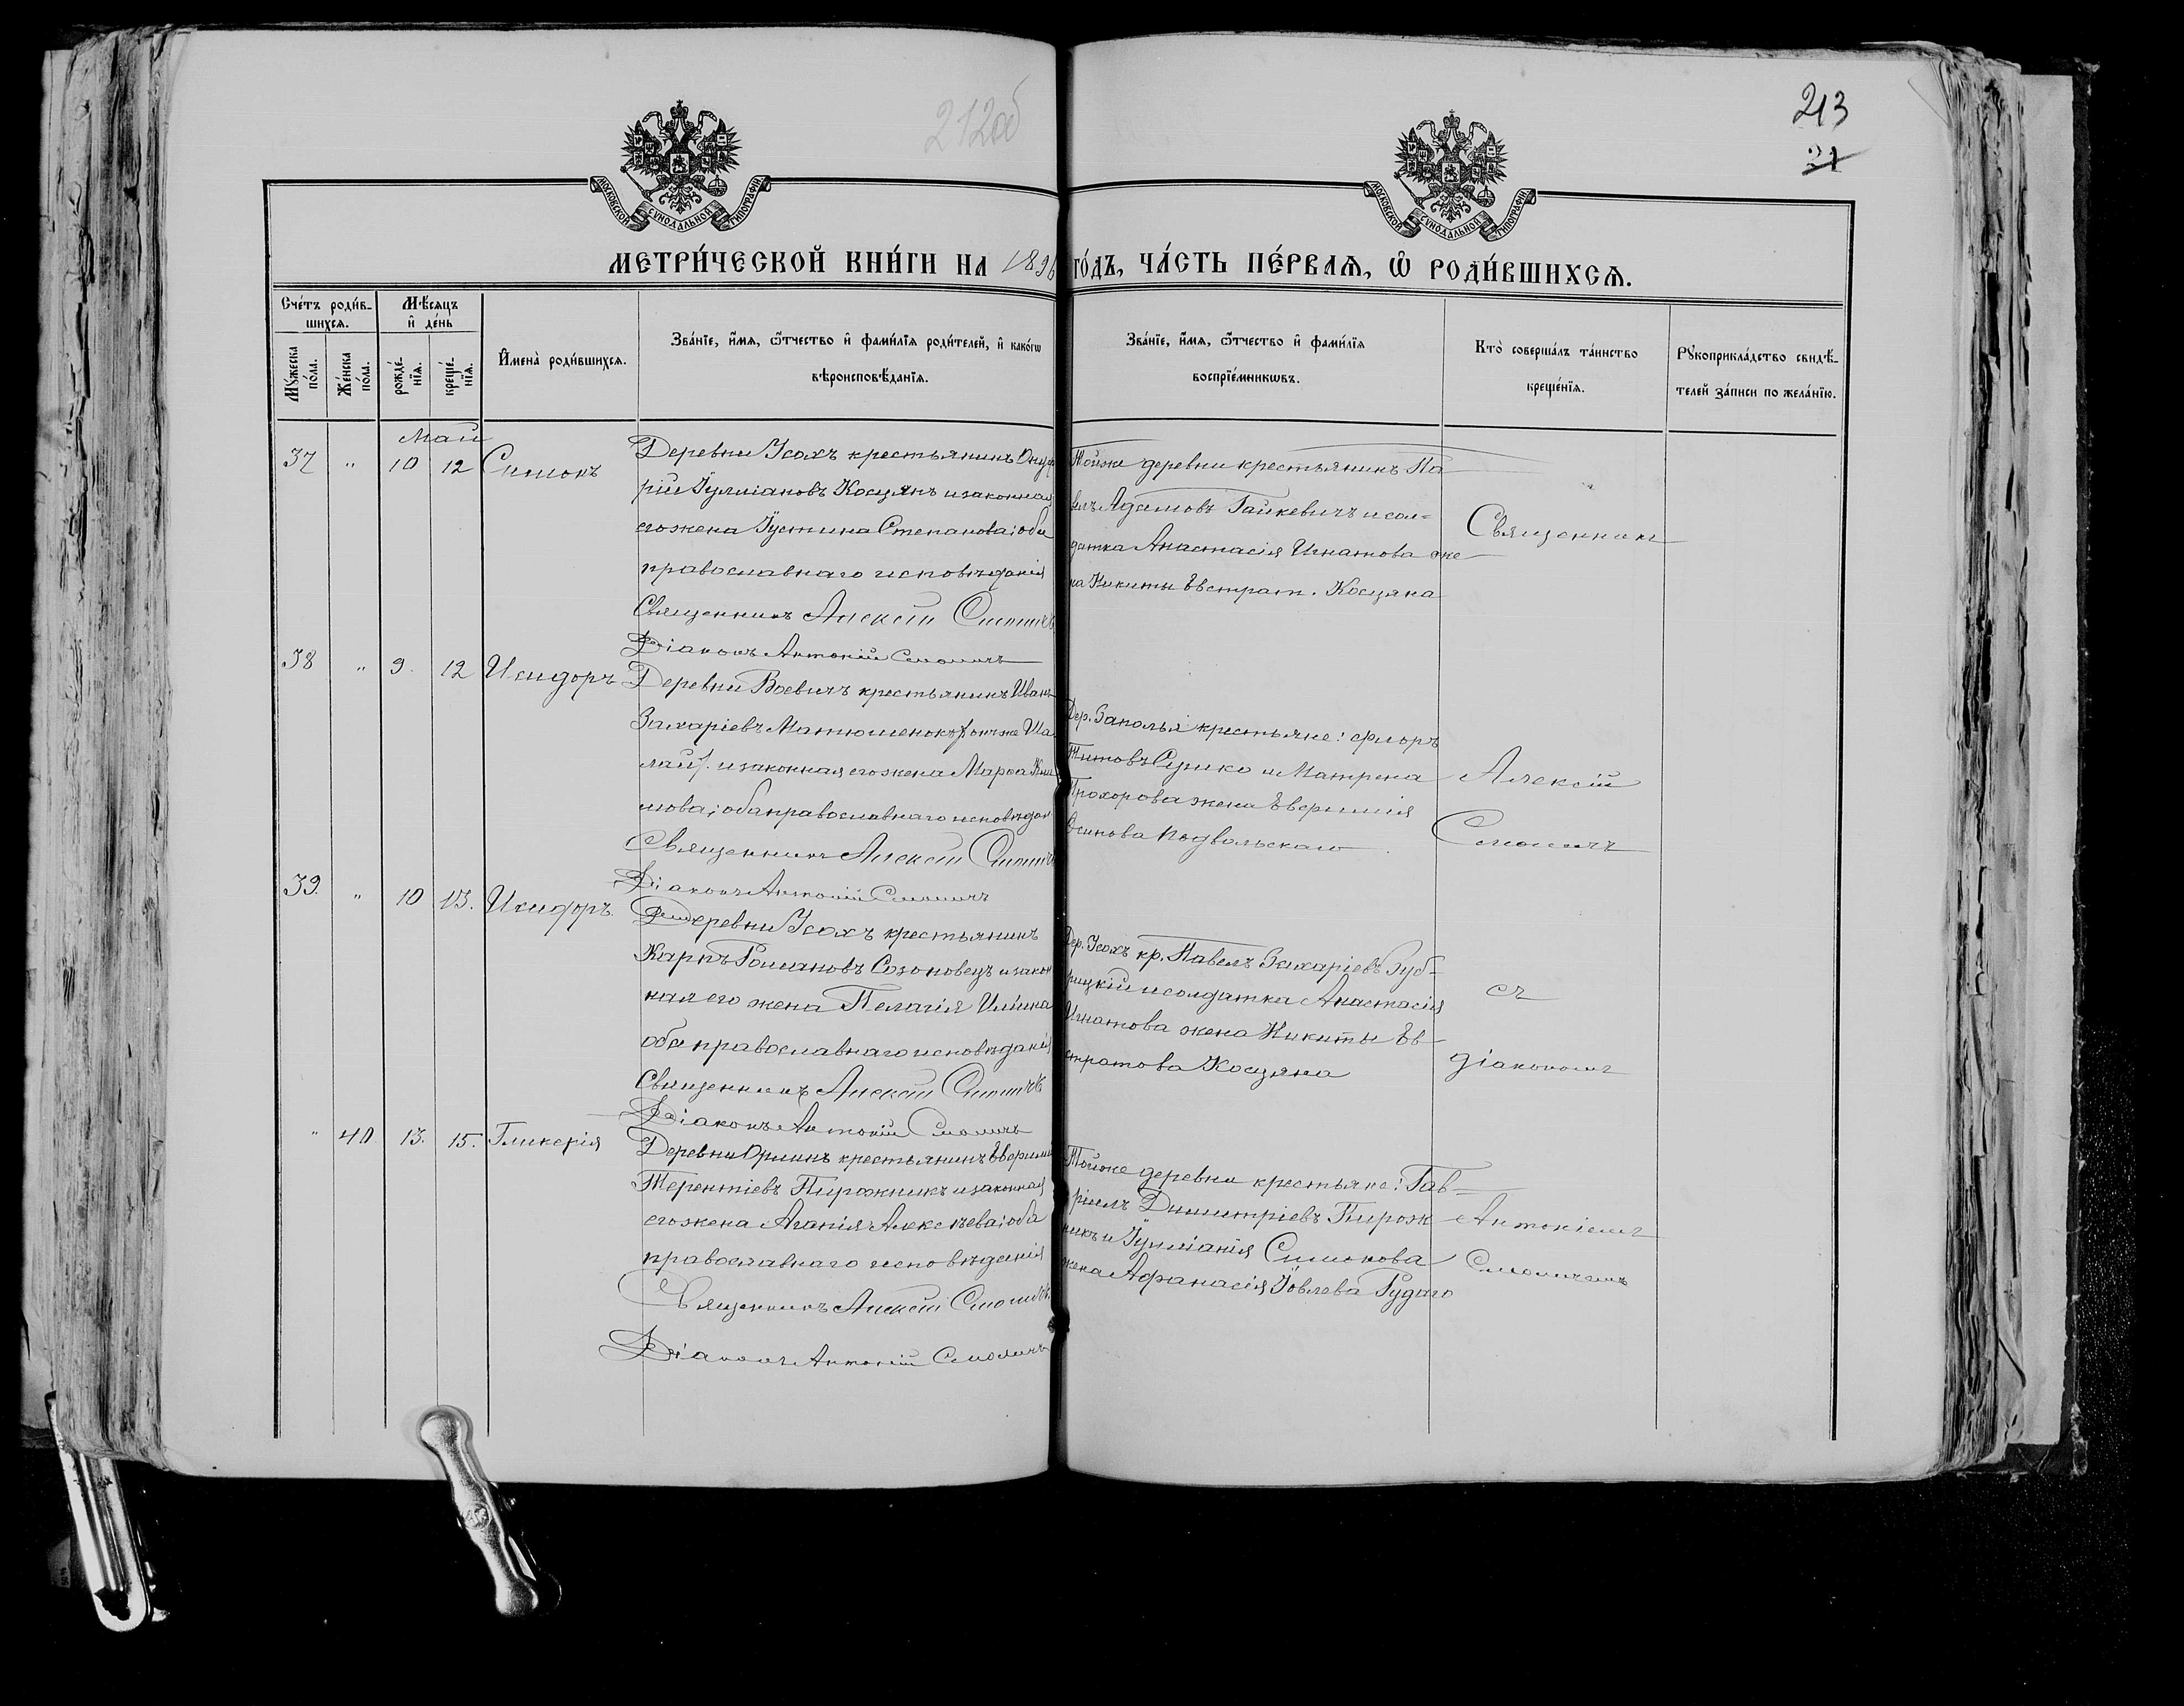 212об
213
21
МОСКОВСКОЙ СѴНОДАЛЬНОЙ ТИПОГРАФІИ
МОСКОВСКОЙ СѴНОДАЛЬНОЙ ТИПОГРАФІИ
МЕТРИ́ЧЕСКОЙ КНИ́ГИ НА 1896 ГО́ДЪ, ЧА́СТЬ ПЕ́РВАѦ, Ѽ РОДИ́ВШИХСѦ.
Сче́тъ роди́в-
шихсѧ.
Мꙋ́жеска по́ла.
Же́нска по́ла.
Мѣ́сѧцъ
и҆ де́нь
рожде́-
нїѧ.
креще́-
нїѧ.
И҆мена̀ роди́вшихсѧ.
Зва́нїе, и҆́мѧ, ѻ҆́тчество и҆ фами́лїѧ роди́телей, и҆ како́гѡ
вѣроисповѣ́данїѧ.
Зва́нїе, и҆́мѧ, ѻ҆́тчество и҆ фами́лїѧ
воспрїе́мникѡвъ.
Кто̀ соверша́лъ та́инство
креще́нїѧ.
Рꙋкоприкла́дство свидѣ́-
телей за́писи по жела́нїю.
Май
37 " 10 12 Симонъ
Деревни Усохъ крестьянинъ Онуф
рій Іуліановъ Косцянъ и законная
его жена Іустина Степанова; оба
православнаго исповѣданія
Священникъ Алексій Смоличъ
Діаконъ Антоній Смоличъ
Тойже деревни крестьянинъ Па
велъ Адамовъ Гайкевичъ и сол=
датка Анастасія Игнатова же
на Никиты Евстрат. Косцяна
Священник
38 " 9. 12 Исидоръ
Деревни Воевичъ крестьянинъ Иванъ
Захаріевъ Матюшенокъ
и законная его жена Марѳа Кли
мова; оба православнаго исповѣдан
Священникъ Алексій Смоличъ
Діаконъ Антоній Смоличъ
Дер. Заполья крестьяне: Флоръ
Титовъ и Матрена
Прохорова жена Евфимія
Осипова Подвольскаго
Алексій
Смоличъ
39. " 10 13. Исидоръ.
Деревни Усохъ крестьянинъ
Карпъ Романовъ Созоновецъ и закон
ная его жена Пелагія Ильина
оба православнаго исповѣданія
Священникъ Алексій Смоличъ
Діаконъ Антоній Смоличъ
Дер. Усохъ кр. Павелъ Захаріевъ Зуб-
рицкій и солдатка Анастасія
Игнатова жена Никиты Ев-
стратова Косцяна
съ
діакономъ
" 40 13. 15. Гликерія
Деревни Орлинъ крестьянинъ Евфимій
Терентіевъ Пирожникъ и законная
его жена Агапія Алексѣева; оба
православнаго исповѣданія
Священникъ Алексій Смоличъ.
Діаконъ Антоній Смоличъ
Тойже деревни крестьяне: Гав-
ріилъ Димитріевъ Пирож
никъ и Іуліанія Симонова
жена Афанасія Іовлева Рудаго
Антоніемъ
Смоличемъ